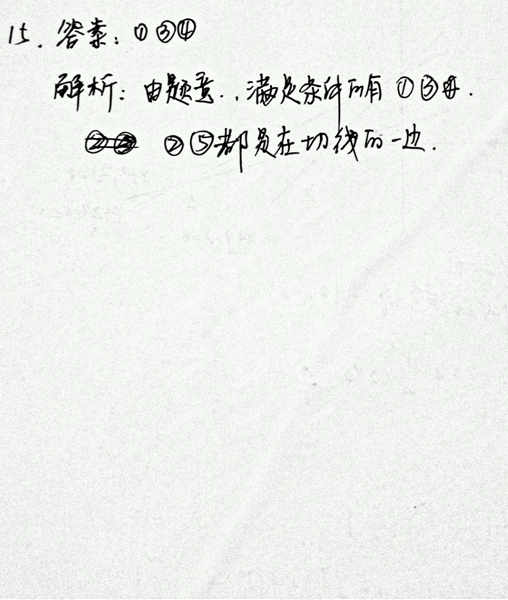 15. 答案: ①③④
解析: 由题意, 满足条件的有 ①③④.
②⑤都是在切线的一边.